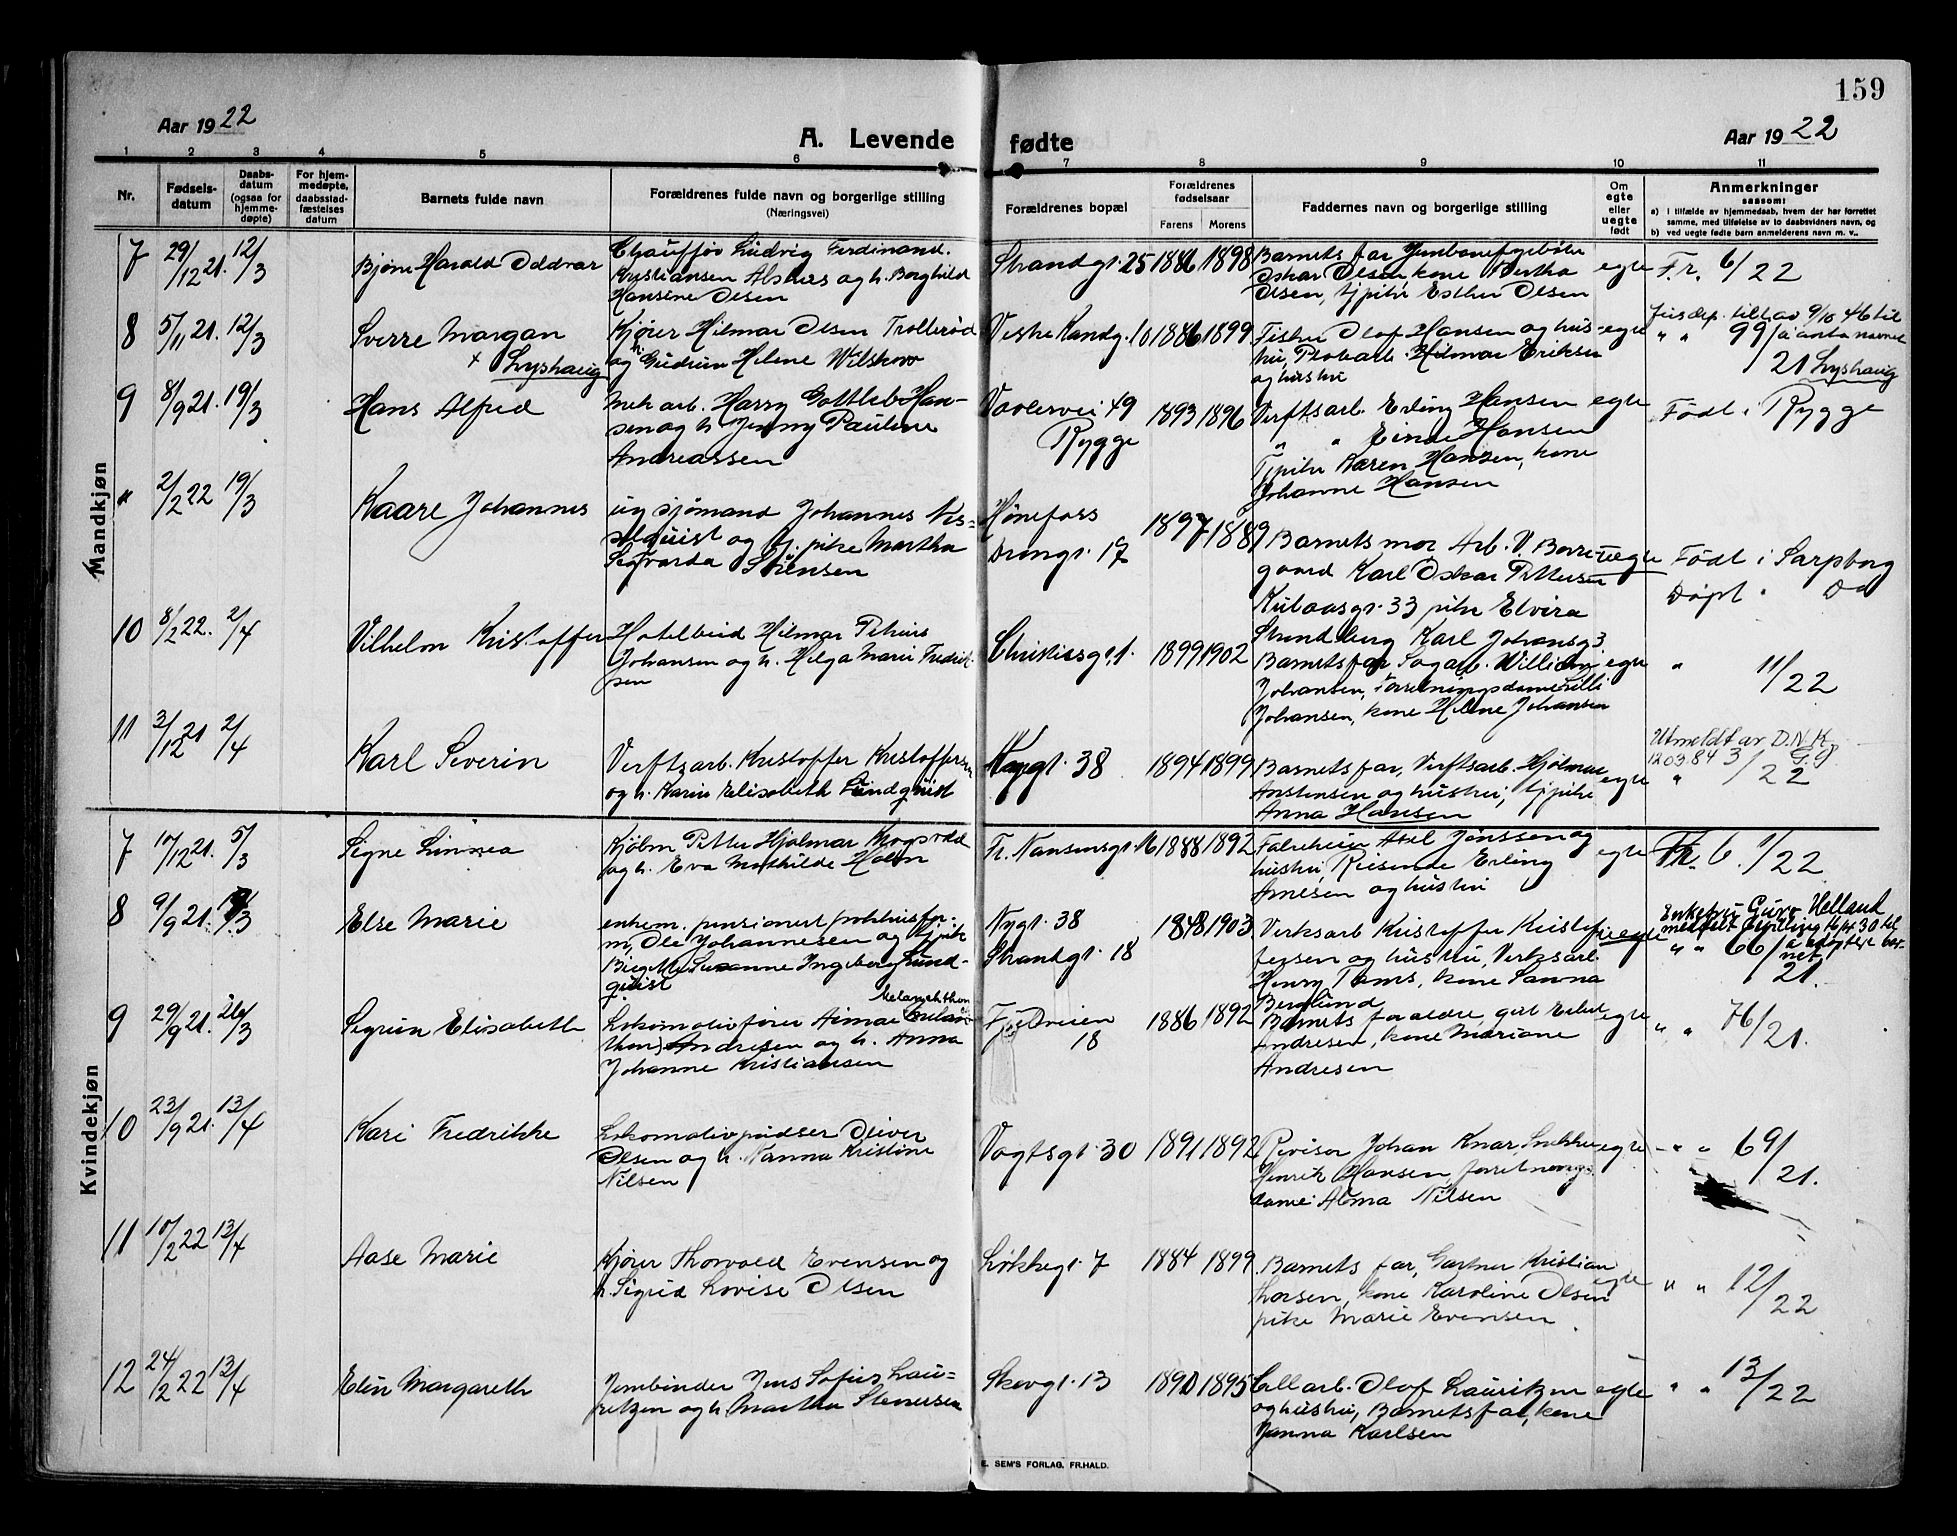 159
Aar 1922
A. Levende fødte
Aar 1922
1 2 3 4 5 6 7 8 9 10 11
Nr.
Fødsels-
datum
Daabs-
datum
(ogsaa for
hjemme-
døpte)
For hjem-
medøpte,
daabsstad-
fæstelses
datum
Barnets fulde navn
Forældrenes fulde navn og borgerlige stilling
(Næringsvei)
Forældrenes bopæl
Forældrenes
fødselsaar
Farens Morens
Faddernes navn og borgerlige stilling
Om
egte
eller
uegte
født
Anmerkninger
sassom:
a) I tilfælde av hjemmedaab, hvem der har forrettet
samme, med tilføielse av to daabsvidners navn, og
b) ved uegte fødte barn anmelderens navn m. v..
Mandkjøn
7 29/12 21. 12/3 Bjørn Harald Oddvar
Chauffør Ludvig Ferdinand
Kristiansen Alsnes og h. Borghild
Hansine Olsen
Strandgt. 25 1886 1898
Barnets far
Oskar Olsen, kone Bertha
Olsen, tjpike Esther Olsen
egte Fr. 6/22
8 5/11 21. 12/3 Sverre Margan
+ Lyshaug
Kjører Hilmar Olsen Trollerød
og h. Gudrun Helene Wilskow
Vestre Kandg. 10 1886 1899
Fisker Olof Hansen og hus-
tru, Hilmar Eriksen
og hustru
egte
Jusdep. till. av 9/10 46 til
" " 99/21 å anta navnet
Lyshaug
9 8/9 21. 19/3 Hans Alfred
Mek arb. Harry Gottleb Han-
sen og h. Jenny Pauline
Andreassen
Vaalervei 49
Rygge
1893 1896
Verftsarb. Erling Hansen
" " Einar Hansen
Tjpike Karen Hansen, kone
Johanne Hansen
egte Født i Rygge
" 2/2 22 19/3 Kaare Johannes
ug sjømand Johannes Nes-
selquist og tj. pike Martha
Sigvarda Sørensen
Hønefoss
Drongt. 17
1897 1889
Barnets mor, Arb. V. Borre-
gaard Karl Oskar Pettersen
Kulaasgt. 33, pike Elvira
Strandberg Karl Johansgt 3
uegte
Født i Sarpborg
Døpt " Do
10 8/2 22. 2/4 Vilhelm Kristoffer
Hotelbud Hilmar Petrius
Johansen og h. Helga Marie Fredrik-
sen
Christiesgt. 1. 1899 1902
Barnets far Sagarb. William
Johansen, Forretningsdame Lilli
Johansen, kone Helene Johansen
egte " 11/22
11 3/12 21 2/4 Karl Severin
Verftsarb. Kristoffer Kristoffersen
og h. Karin Elisabeth Lundquist
Nygt. 38 1894 1899
Barnets far, Verftsarb. Hjalmar
Anstensen og hustru, tjpike
Anna Hansen
egte
Utmeldt av D.N.K.
120384
" 3/22
Kvindekjøn
7 10/12 21. 5/3 Signe Linnea
Kjøbm Petter Hjalmar Krogsrød
og h. Eva Mathilde Holm
Fr. Nansensgt. 16 1888 1892
Axel Jonssen og
hustru, Reisende Erling
Arnesen og hustru
egte Fr. b. 1/22
8 9/9 21. Else Marie
enkem. pensionert politifor-
m. Ole Johannesen og tjpike
Birgitte Susanne Ingeborg Lund-
quist
Nygt. 38
Strandgt. 18
1848 1903
Verksarb Kristoffer Kristof-
fersen og hustru, Verksarb.
Henry Toms, kone Sanna
Berglund
uegte
Enkefru Guro Helland
meddelt bevilling 30 til
" " 66/21. å adoptere bar-
net
9 29/9 21. 26/3 Sigrun Elisabeth
Melanchthon
Lokomotivfører Aimar (Melanch-
thon) Andresen og h. Anna
Johanne Kristiansen
Fjeldveien
18
1886 1892
Barnets foraldre, gut Erlut
Andresen, kone Mariane
Andresen
egte " " 76/21.
10 23/9 21. 13/4 Kari Fredrikke
Lokomotivpudser Oliver
Olsen og h. Nanna Kristine
Nilsen
Vogtsgt. 30 1891 1892
Revisor Johan Knar, Snekker
Henrik Hansen, forretnings-
dame Alma Nilsen
egte " " 69/21.
11 10/2 22 13/4 Aase Marie
Kjører Thorvald Evensen og
h. Sigrid Lovise Olsen
Løkkegt. 7 1884 1899
Barnets far, Gartner Kristian
Thorsen, kone Karoline Olsen
pike Marie Evensen.
egte " " 12/22
12 24/2 22 13/4 Elin Margareth
Jernbinder Jens Sofus Lau-
ritzen og h. Martha Stenersen
Skovgt. 13 1890 1895
Cell arb. Olof Lauritzen
og hustru, Barnets far, kone
Janna Karlsen
egte " " 13/22
E. SEM'S FORLAG, FR.HALD.